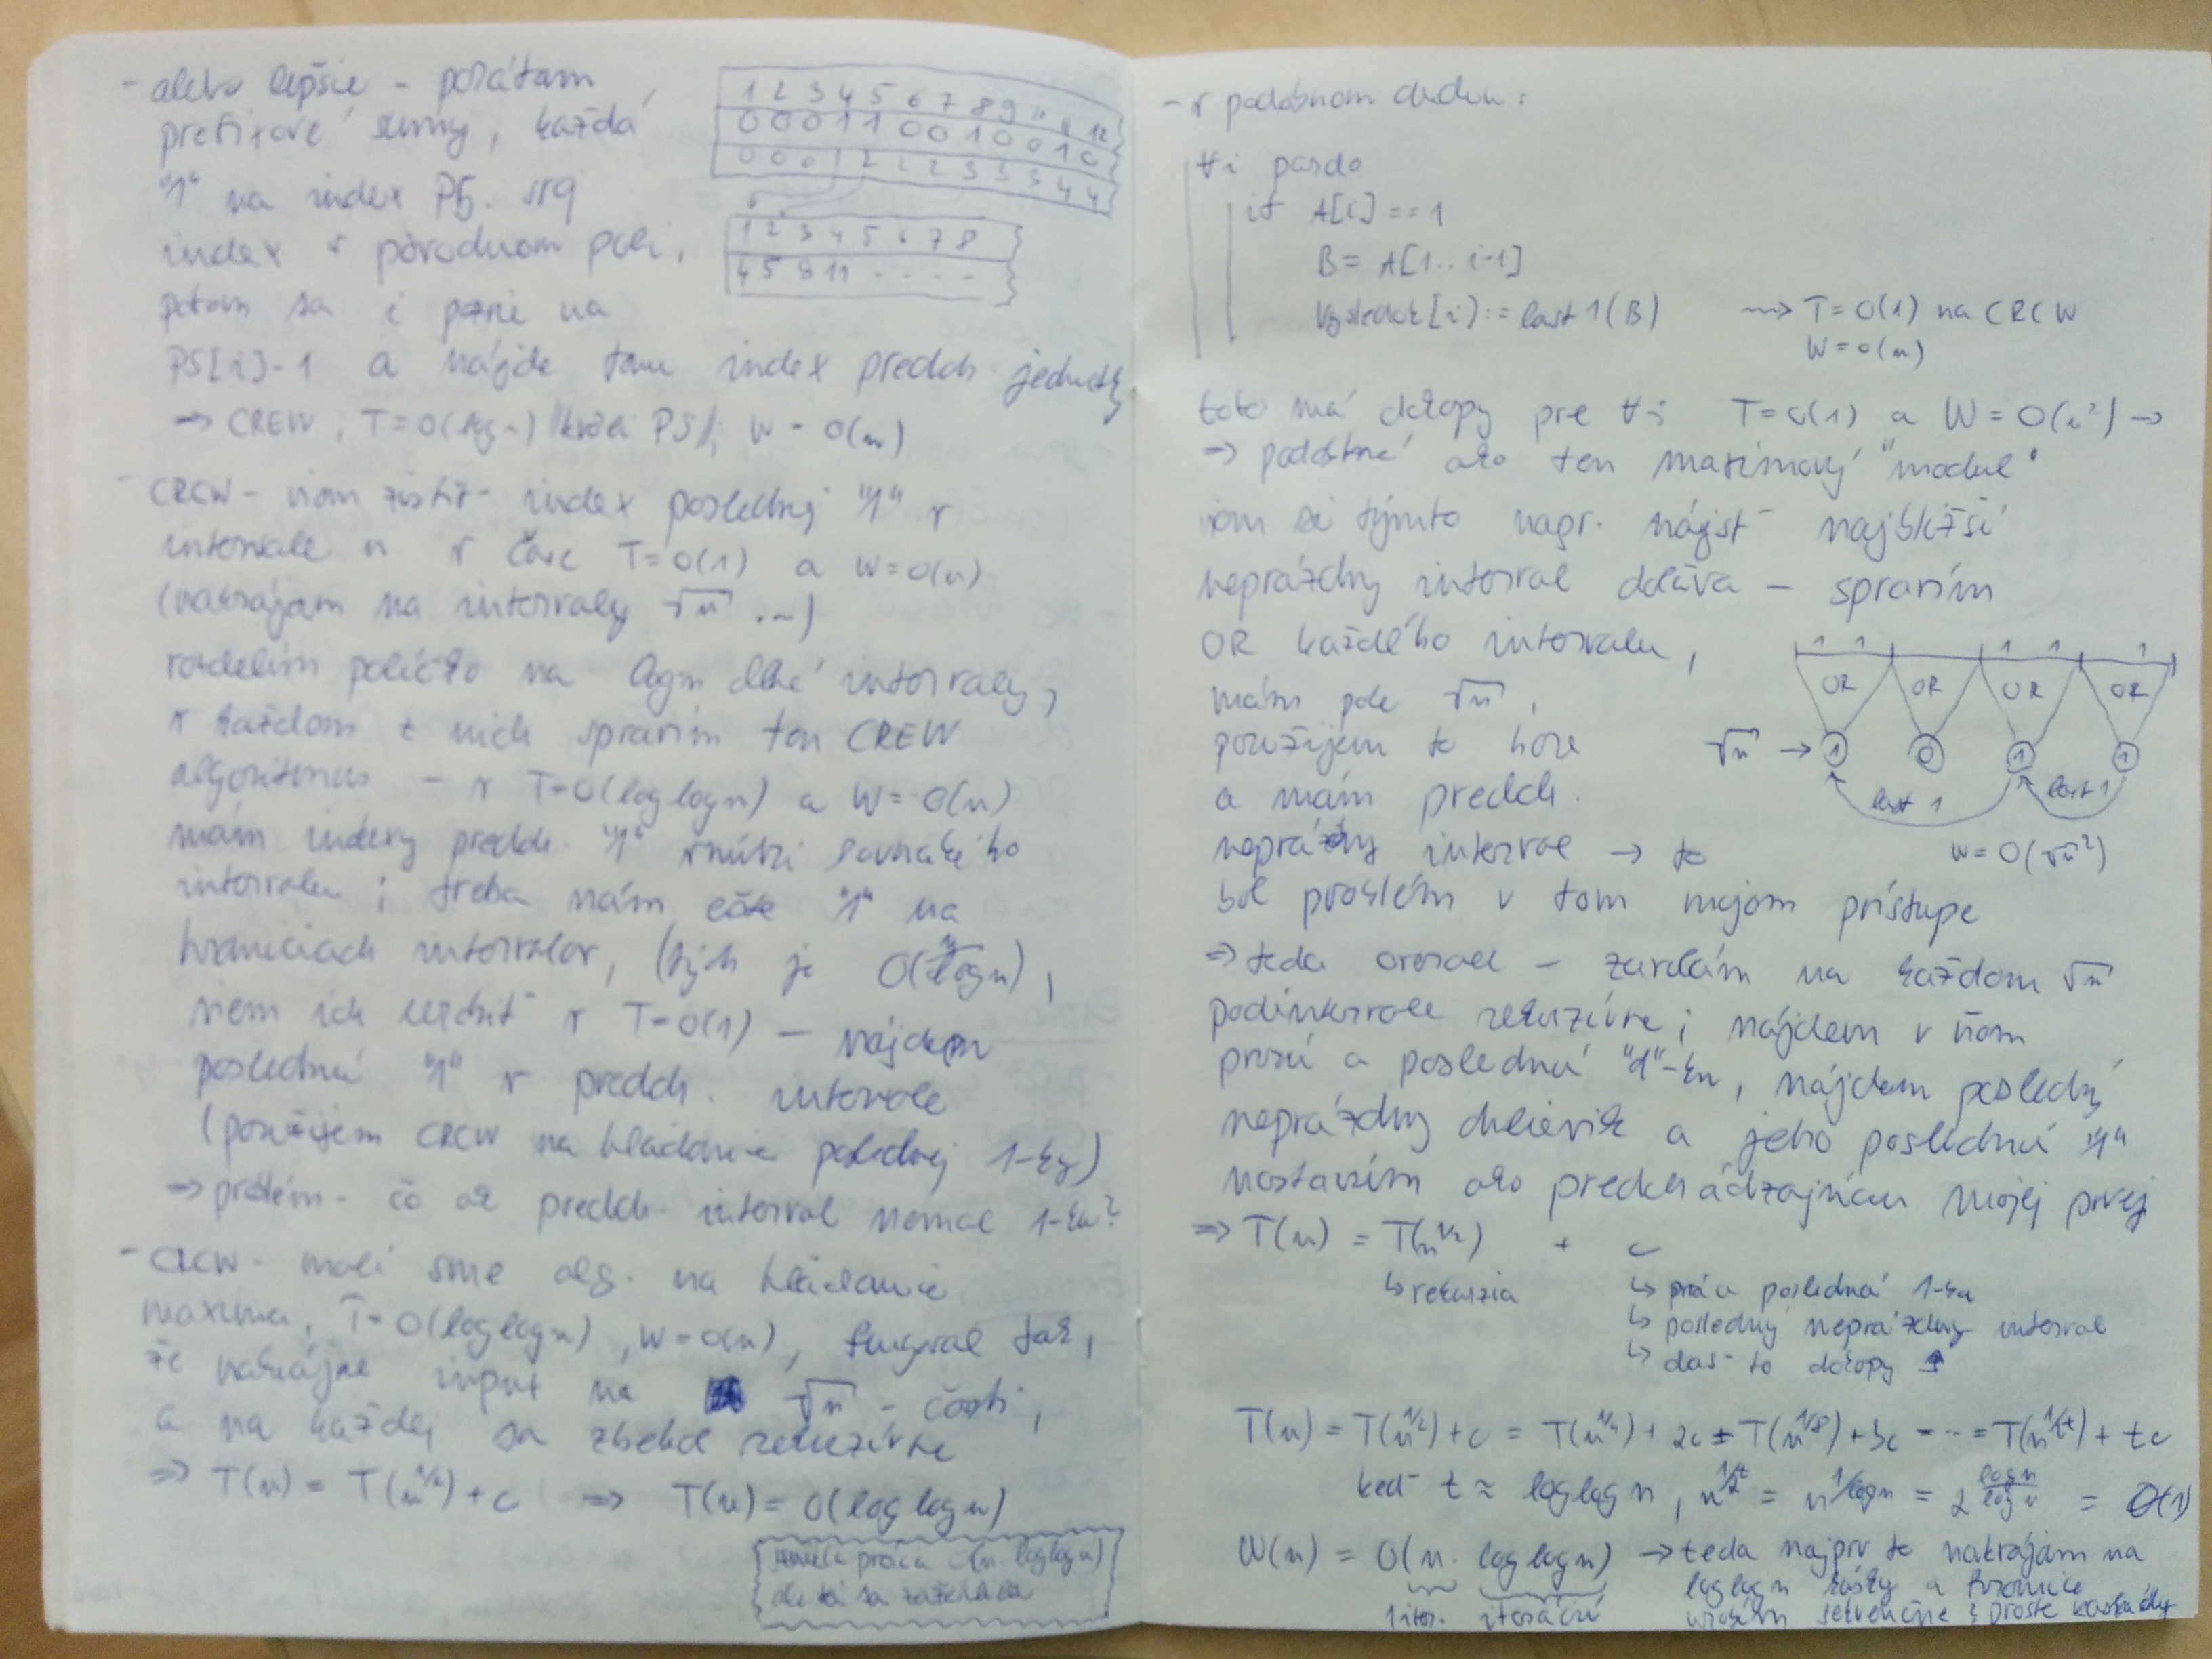 - alebo lepšie - porátam
prefixové sumy, každá
"1" na index PS. svoj
index v pôvodnom poli,
potom sa i pozrie na
PS[i]-1 a nájde tam index predch. jednotky
→ CREW, T=O(log n) /kvôli PS/; W = O(n)
1 2 3 4 5 6 7 8 9 10 11 12
0 0 0 1 1 0 0 1 0 0 1 0
0 0 0 1 2 2 2 3 3 3 4 4
1 2 3 4 5 6 7 8
4 5 8 11 - - - -
- CRCW - viem zistiť index poslednej "1" v
intervale n v čase T=O(1) a W=O(n)
(nakrájam na intervaly √n ...)
rozdelím políčko na log n dlhé intervaly,
v každom z nich spravím ten CREW
algoritmus - v T=O(log log n) a W=O(n)
mám indexy predch. "1" vnútri rovnakého
intervalu; treba nám ešte "1" na
hraniciach intervalov, (tých je O(n/log n),
viem ich urobiť v T=O(1) - nájdem
poslednú "1" v predch. intervale
(použijem CRCW na hľadanie poslednej 1-ky)
⇒ problém - čo ak predch. interval nemal 1-ku?
- CRCW - mali sme alg. na hľadanie
maxima, T=O(log log n), W=O(n), fungoval tak,
že nakrájne input na √n - časti,
a na každej sa zbehol rekurzívne
⇒ T(n) = T(n^1/2) + c ⇒ T(n) = O(log log n)
práca O(n log log n)
sa
- v podobnom duchu:
∀i pardo
if A[i] == 1
B = A[1..i-1]
Vysledok[i] := last 1(B) ⇝ T=O(1) na CRCW
W=O(n)
toto má dokopy pre ∀i T=O(1) a W=O(n²) →
→ podobné ako ten maximový "modul"
viem si týmto napr. nájsť najbližší
neprázdny interval doľava - spravím
OR každého intervalu,
mám pole √n,
použijem to hore
a mám predch.
neprázdny interval → to
bol problém v tom mojom prístupe
1 1 1 1 1
OR OR OR OR
√n → 1 0 1 1
last 1 last 1
W=O(√n²)
⇒ teda naozaj - zavolám na každom √n
podintervale rekurzívne; nájdem v ňom
prvú a poslednú "1"-ku, nájdem posledný
neprázdny chlievik a jeho poslednú "1"
nastavím ako predchádzajúcu mojej prvej
⇒ T(n) = T(n^1/2) + c
↳ rekurzia
↳ prvá a posledná 1-ka
↳ posledný neprázdny interval
↳ dať to dokopy
T(n) = T(n^1/2) + c = T(n^1/4) + 2c = T(n^1/8) + 3c = ... = T(n^1/2^t) + tc
keď t ≈ log log n, n^1/2^t = n^1/log n = 2^log n/log n = O(1)
W(n) = O(n · log log n) → teda najprv to nakrájam na
1 iter. iterácií
log log n kúsky a hranice
urobím sekvenčne, proste kaskády